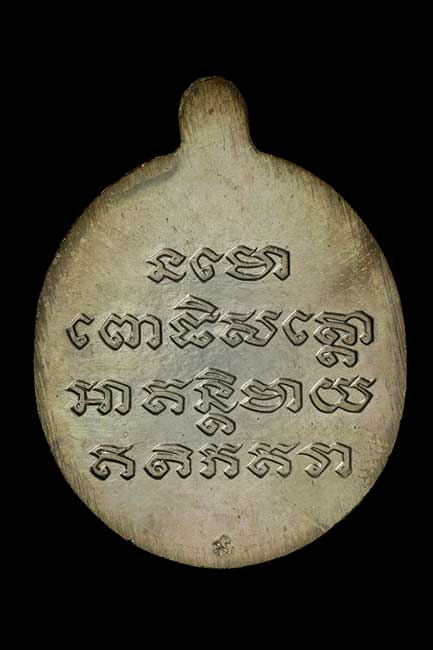 នមោ
ពោធិសត្តោ
អាគន្តិមាយ
ឥតិភគវា